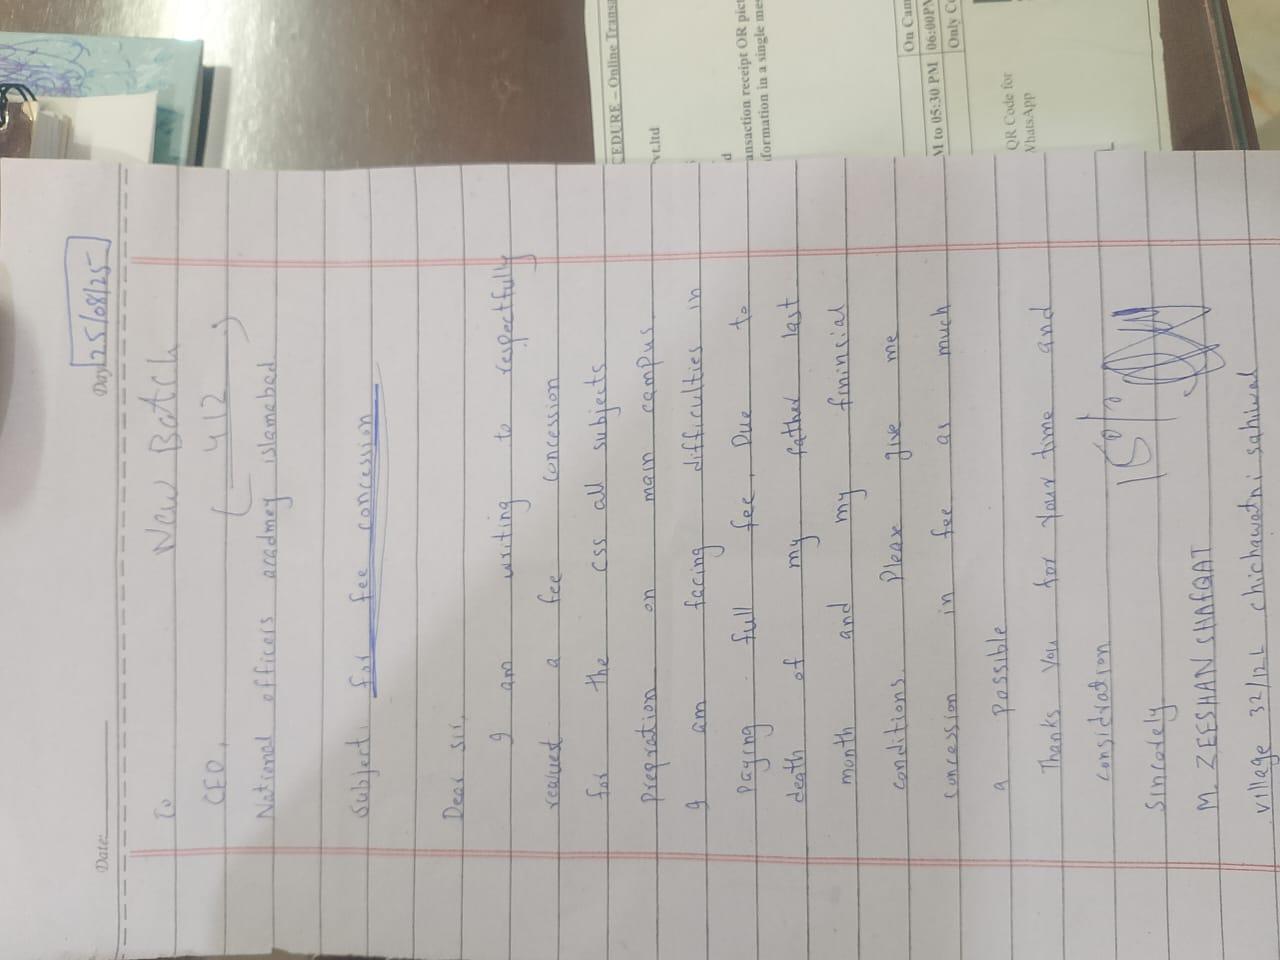 Date:
Day 25/08/25
New Batch
( 412 )
To
CEO,
National officers acadmey islamabad
Subject: for fee concession
Dear sir,
I am writing to respectfully
reqest a fee concession
for the css all subjects
prepration on main campus.
I am facing difficulties in
paying full fee. Due to
death of my father last
month and my finincial
conditions. Please give me
concession in fee as much
a possible
Thanks you for your time and
considration
Sincerely
M. ZEESHAN SHAFQAT
village 32/12L chichawatni sahiwal
CEDURE – Online Transa
vt.ltd
ansaction receipt OR pict
formation in a single me
On Cam
M to 05:30 PM 06:00PM
Only Co
QR Code for
WhatsApp